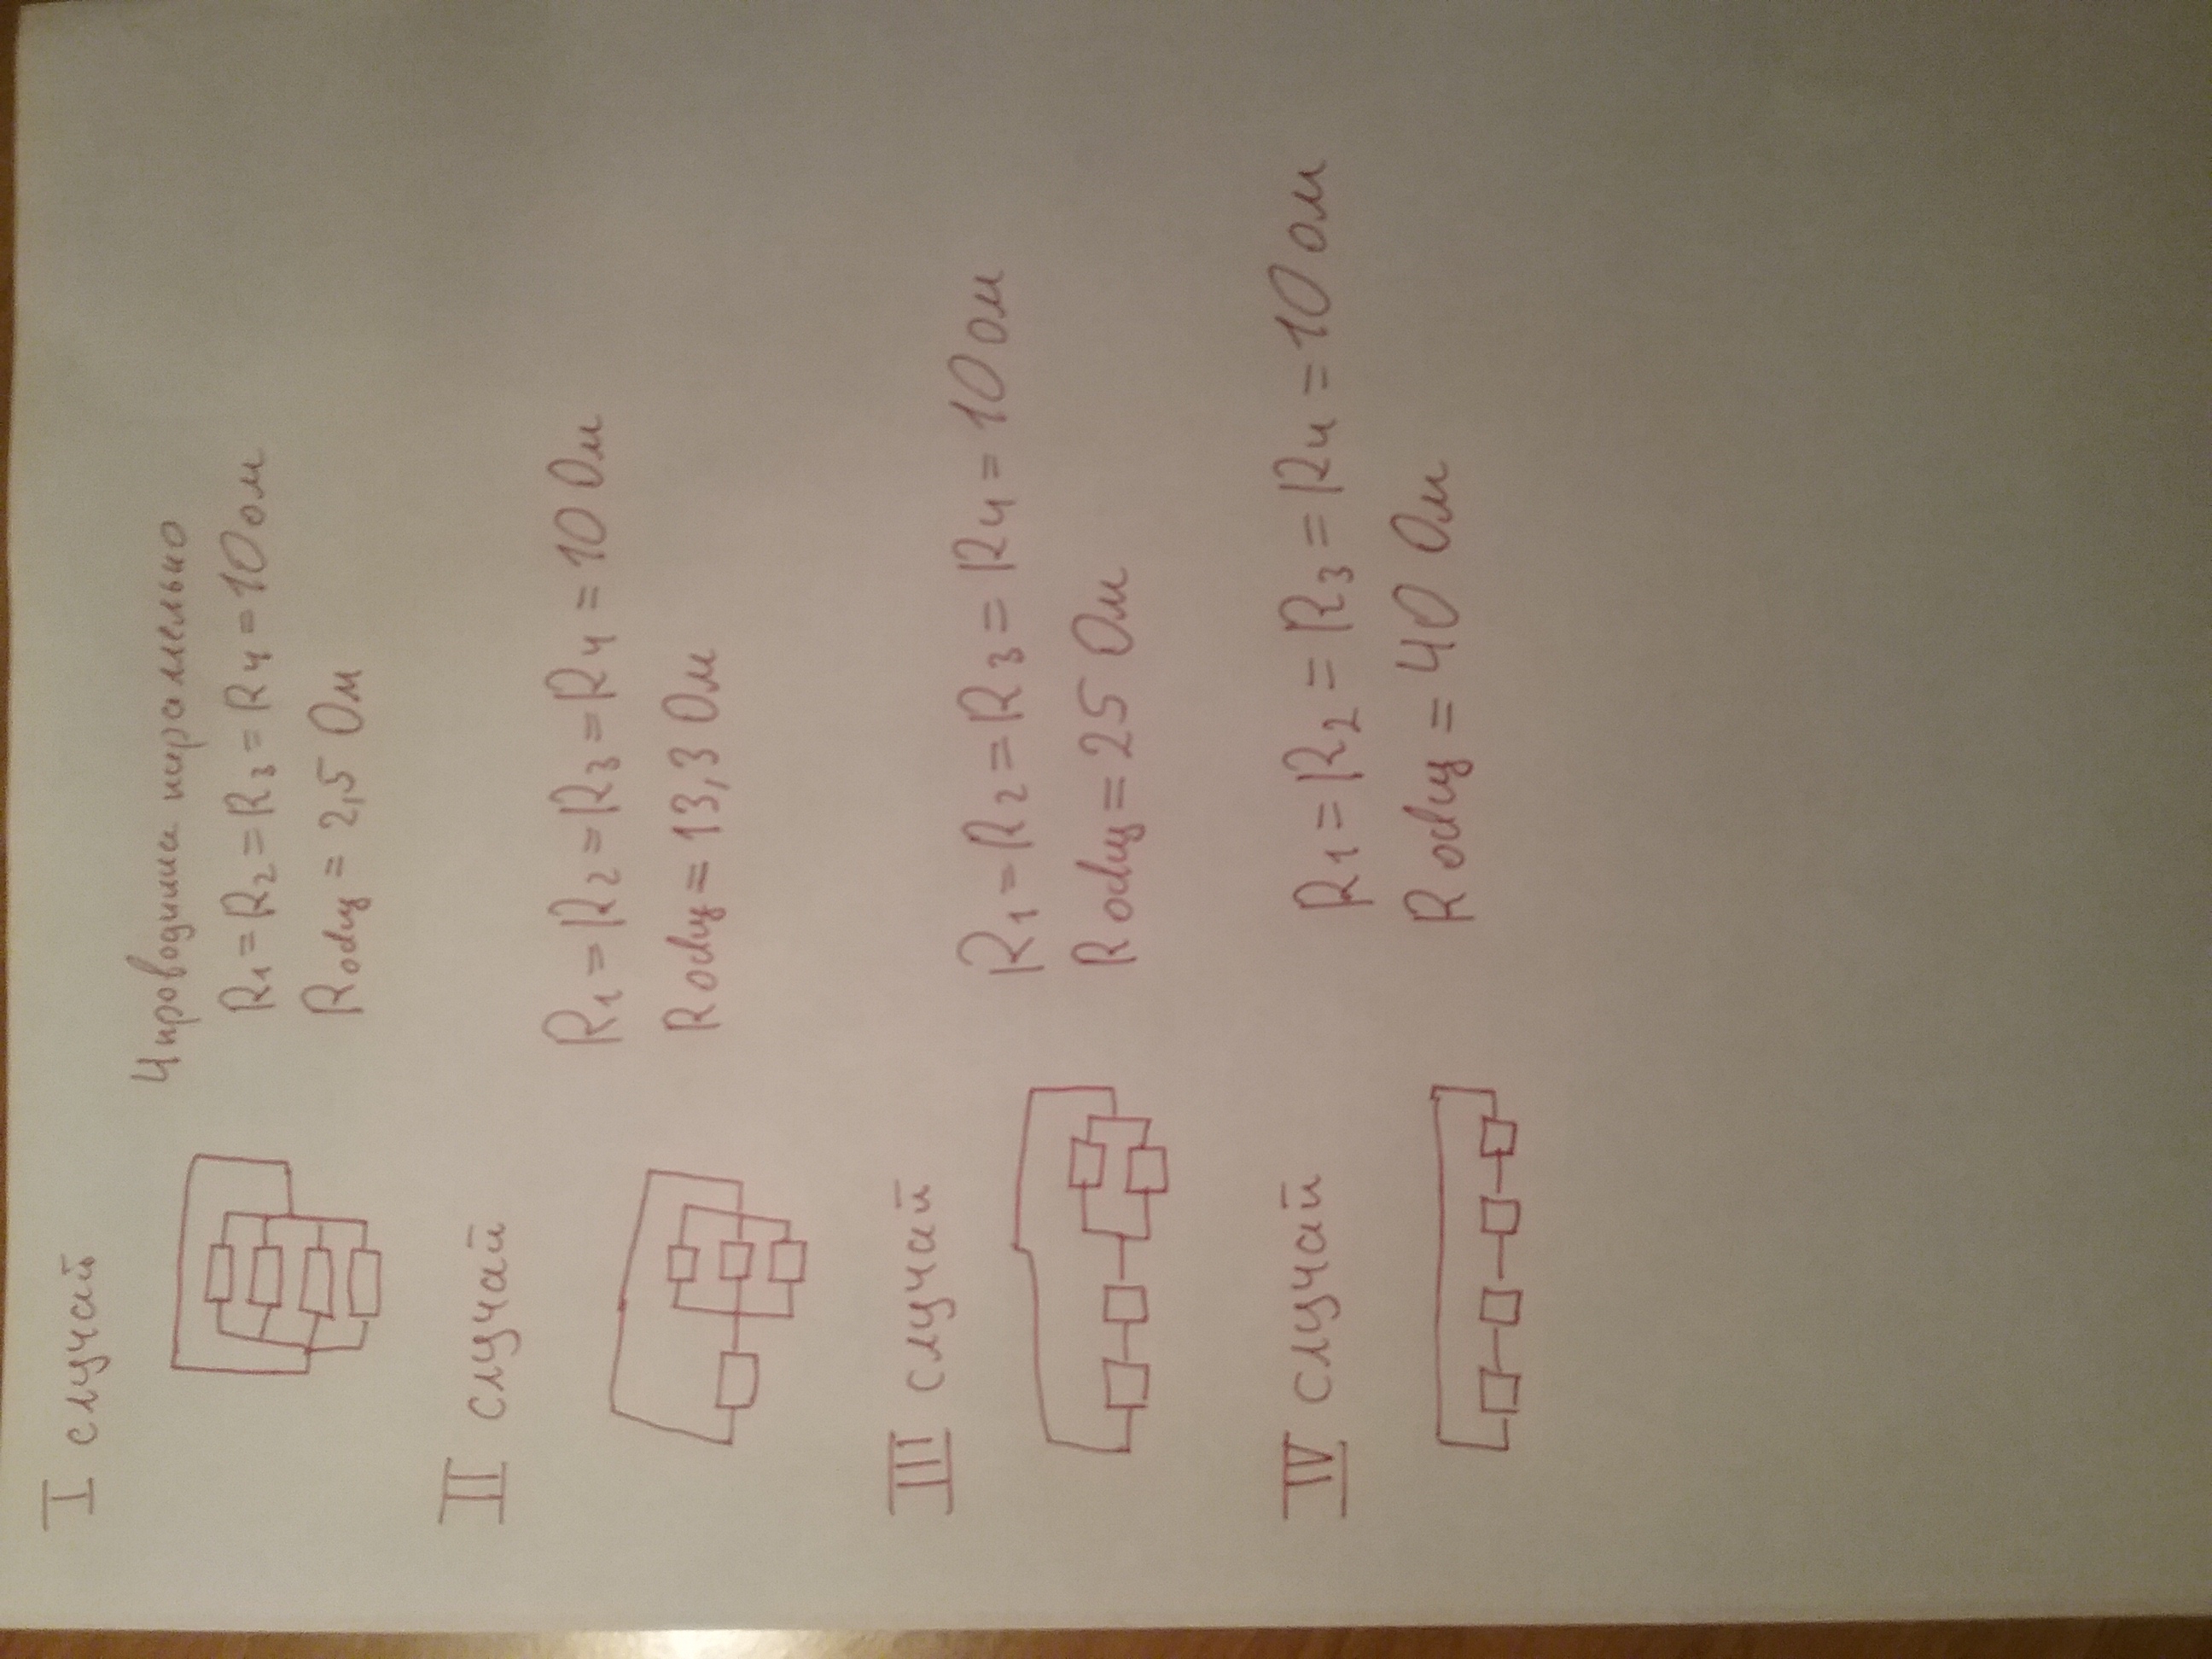 I случай
4 проводника паралельно
R1 = R2 = R3 = R4 = 10 ом
Rобщ = 2,5 Ом
II случай
R1 = R2 = R3 = R4 = 10 Ом
Rобщ = 13,3 Ом
III случай
R1 = R2 = R3 = R4 = 10 ом
Rобщ = 25 Ом
IV случай
R1 = R2 = R3 = R4 = 10 ом
Rобщ = 40 Ом